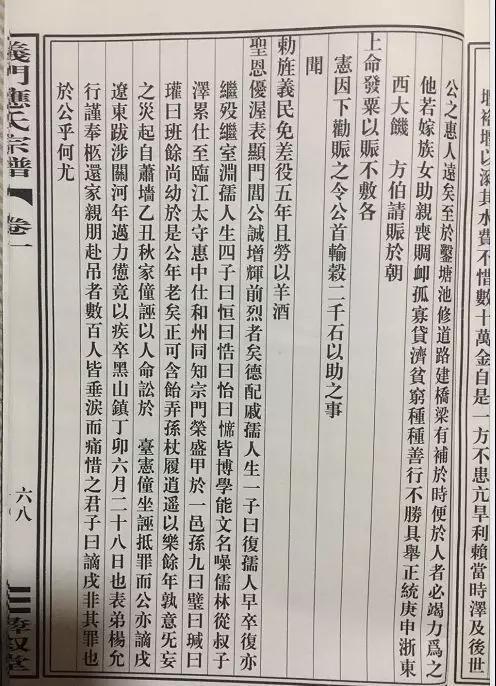 堰格堰以溉其水費不惜數十萬金自是一方不患亢旱利賴當時澤及後世
公之惠人遠矣至於鑿塘池修道路建橋梁有補於時便於人者必竭力爲之
他若嫁族女助親喪賙卹孤寡貸濟貧窮種種善行不勝具舉正統庚申浙東
西大饑 方伯請賑於朝
上命發粟以賑不敷各
憲因下勸賑之令公首輸榖二千石以助之事
聞
勅旌義民免差役五年且勞以羊酒
聖恩優渥表顯門閭公誠增輝前烈者矣德配戚孺人生一子曰復孺人早卒復亦
繼殁繼室淵孺人生四子曰恒曰悎曰怡曰㦅皆博學能文名噪儒林從叔子
澤累仕至臨江太守惠中仕和州同知宗門榮盛甲於一邑孫九曰璧曰瑊曰
瓘曰班餘尚幼於是公年老矣正可含飴弄孫杖履逍遥以樂餘年孰意旡妄
之災起自蕭墻乙丑秋家僮誣以人命訟於 臺憲僮坐誣抵罪而公亦謫戌
遼東跋涉關河年邁力憊竟以疾卒黑山鎮丁卯六月二十八日也表弟楊允
行謹奉柩還家親朋赴吊者數百人皆垂淚而痛惜之君子曰謫戌非其罪也
於公乎何尤
義門應氏宗譜
卷一
六八
叙堂